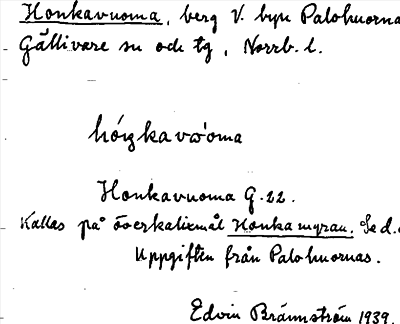 Honkavuoma, berg V. byn Palohuorna
Gällivare sn och tg, Norrb. l.
hóŋkavẁoma
Honkavuoma G.22.
Kallas på överkalixmål Honkamyran. Se d.o
Uppgiften från Palohuornas.
Edvin Brännström 1939.